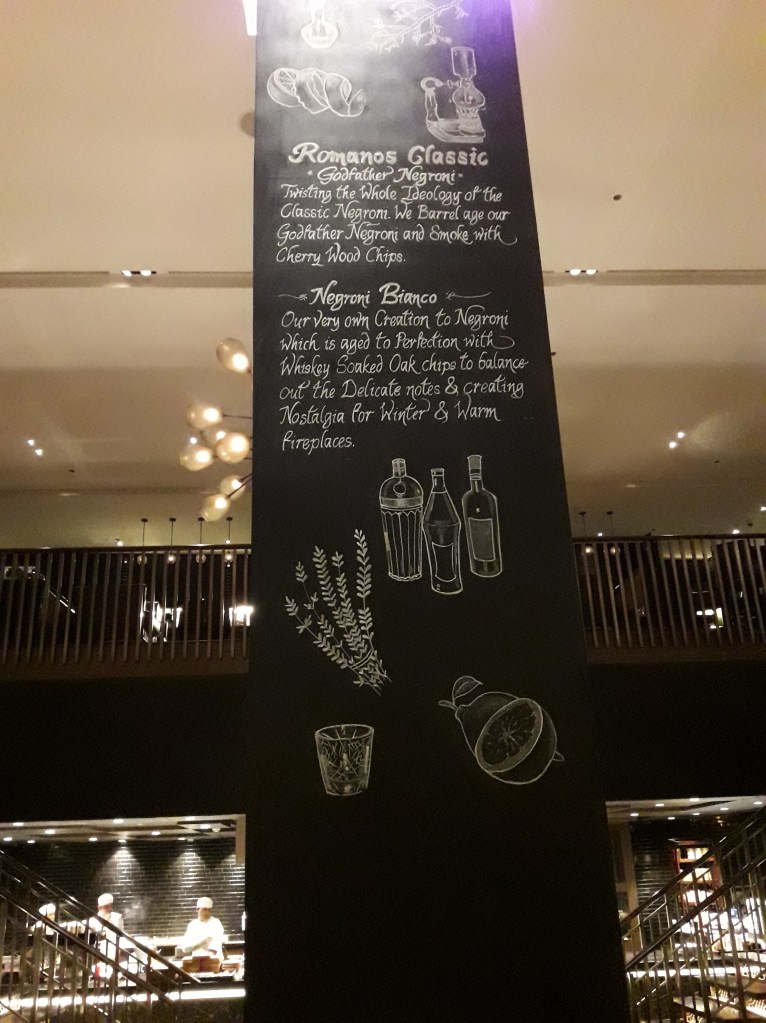 Romanos Classic
• Godfather Negroni •
Twisting the Whole Ideology of the
Classic Negroni. We Barrel age our
Godfather Negroni and Smoke with
Cherry Wood Chips.
Negroni Bianco
Our very own Creation to Negroni
which is aged to Perfection with
Whiskey Soaked Oak chips to balance
out the Delicate notes & creating
Nostalgia for Winter & Warm
fireplaces.